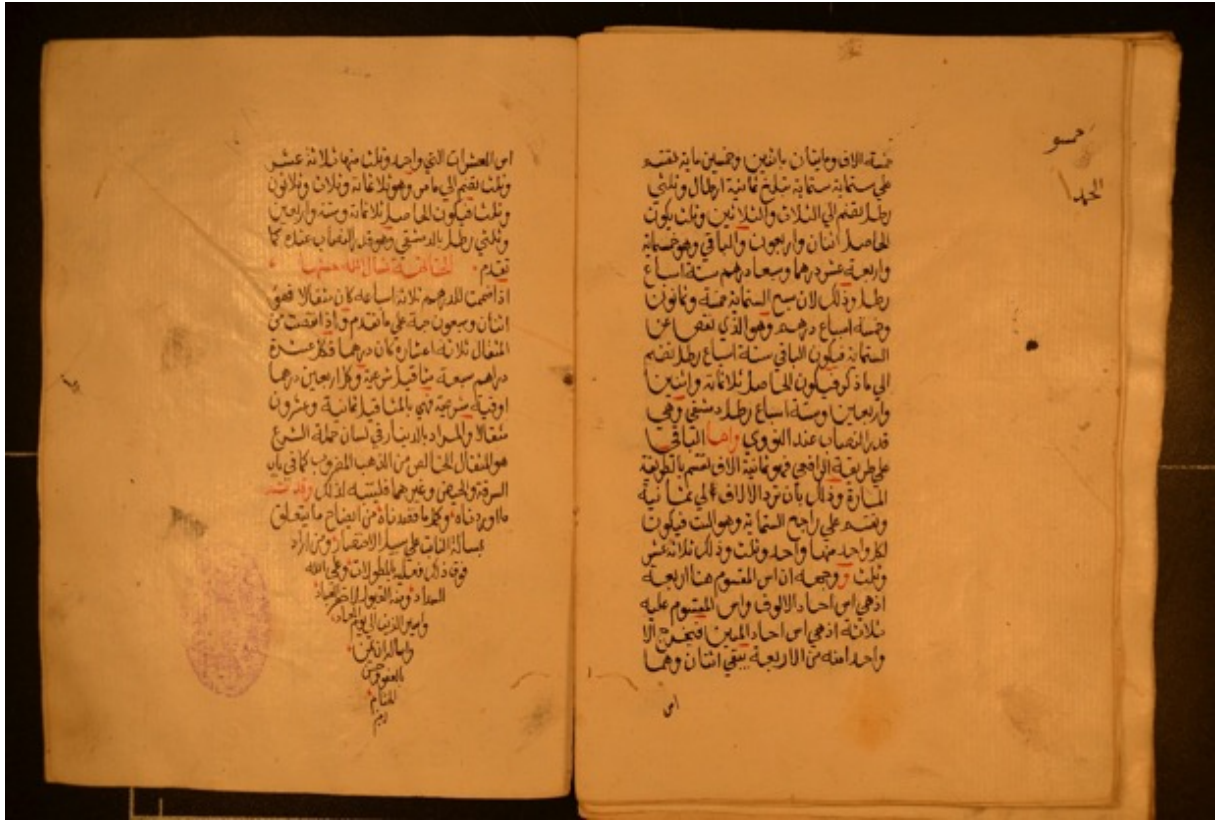 خمسة الاف ومايتان باثنين وخمسين ماية تقسم
علي ستماية ستماية تبلغ ثمانية ارطال وثلثي
رطل تضم الي الثلاث والثلاثين وثلث يكون
الحاصل اثنان واربعون والباقي وهو خمسماية
واربعة عشر درهما وسبعا درهم ستة اسباع
رطل وذلك لان سبع الستماية خمسة وثمانون
وخمسة اسباع درهم وهو الذي نقص عن
الستماية فيكون الباقي ستة اسباع رطل تضم
الي ما ذكر فيكون الحاصل ثلاثماية واثنين
واربعين وستة اسباع رطل دمشقي وهي
قدر النصاب عند النووي واما الباقي
علي طريقة الرافعي فهو ثمانية الاف تقسم بالطريقة
المارة وذلك بأن ترد الالاف الي ثمانية
وتقسم علي راجع الستماية وهو الست فيكون
لكل واحد منها واحد وثلث وذلك ثلاثة عشر
وثلث ووجهه ان اس المقسوم هنا اربعة
اذ هي اس احاد الالوف واس المقسوم عليه
ثلاثة اذ هي اس احاد المئين فيخرج الا
واحدا منه من الاربعة يبقي اثنان وهما
اس
اس العشرات التي واحد وثلث منها ثلاثة عشر
وثلث يضم الي ما مر وهو ثلاثماية وثلاث وثلاثون
وثلث فيكون الحاصل ثلاثماية وستة واربعين
وثلثي رطل بالدمشقي وهو قدر النصاب عنده كما
تقدم الخاتمة نسال الله حسنها
اذا ضممت للدرهم ثلاثة اسباعه كان مثقالا فهو
اثنان وسبعون حبة علي ما تقدم واذا نقصت من
المثقال ثلاثة اعشاره كان درهما فكل عشرة
دراهم سبعة مثاقيل شرعية وكل اربعين درهما
اوقية شرعية فهي بالمثاقيل ثمانية وعشرون
مثقالا والمراد بالدينار في لسان حملة الشرع
هو المثقال الخالص من الذهب المضروب كما في باب
السرقة والحيض وغيرهما فليتنبه لذلك وقد تم
ما اوردناه وكمل ما قصدناه من ايضاح ما يتعلق
بمسالة النبات علي سبيل الاختصار ومن اراد
فوق ذلك فعليه بالمطولات وعلي الله
السداد ومنه القبول
الي يوم
واساله ان يمن
بالعفو وحسن
الختام